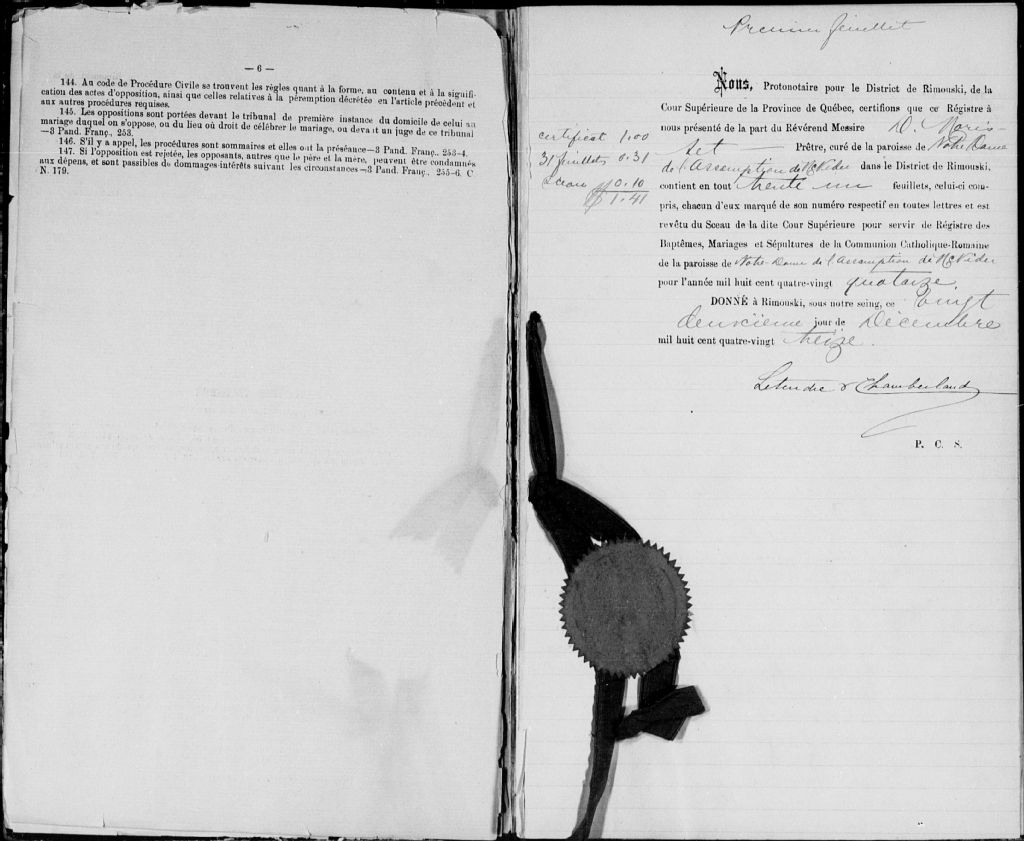 — 6 —
144. Au code de Procédure Civile se trouvent les règles quant à la forme, au contenu et à la signifi-
cation des actes d'opposition, ainsi que celles relatives à la péremption décrétée en l'article précédent et
aux autres procédures requises.
145. Les oppositions sont portées devant le tribunal de première instance du domicile de celui au
mariage duquel on s'oppose, ou du lieu où droit de célébrer le mariage, ou devant un juge de ce tribunal
—3 Pand. Franç., 253.
146. S'il y a appel, les procédures sont sommaires et elles ont la préséance—3 Pand. Franç.. 253-4.
147. Si l'opposition est rejetée, les opposants, autres que le père et la mère, peuvent être condamnés
aux dépens, et sont passibles de dommages-intérêts suivant les circonstances—3 Pand. Franç.. 255-6. C
N. 179.
Premier feuillet
Nous, Protonotaire pour le District de Rimouski, de la
Cour Supérieure de la Province de Québec, certifions que ce Régistre à
nous présenté de la part du Révérend Messire D. Moris-
set Prêtre, curé de la paroisse de Notre Dame
de l'Assomption de McNider dans le District de Rimouski,
contient en tout trente un feuillets, celui-ci com-
pris, chacun d'eux marqué de son numéro respectif en toutes lettres et est
revêtu du Sceau de la dite Cour Supérieure pour servir de Régistre des
Baptêmes, Mariages et Sépultures de la Communion Catholique-Romaine
de la paroisse de Notre-Dame de l'Assomption de McNider
pour l'année mil huit cent quatre-vingt quatorze.
DONNÉ à Rimouski, sous notre seing, ce vingt
deuxième jour de Décembre
mil huit cent quatre-vingt treize.
Letendre & Chamberland
P. C. S.
certificat 1.00
31 feuillets 0.31
Sceau 0.10
$1.41